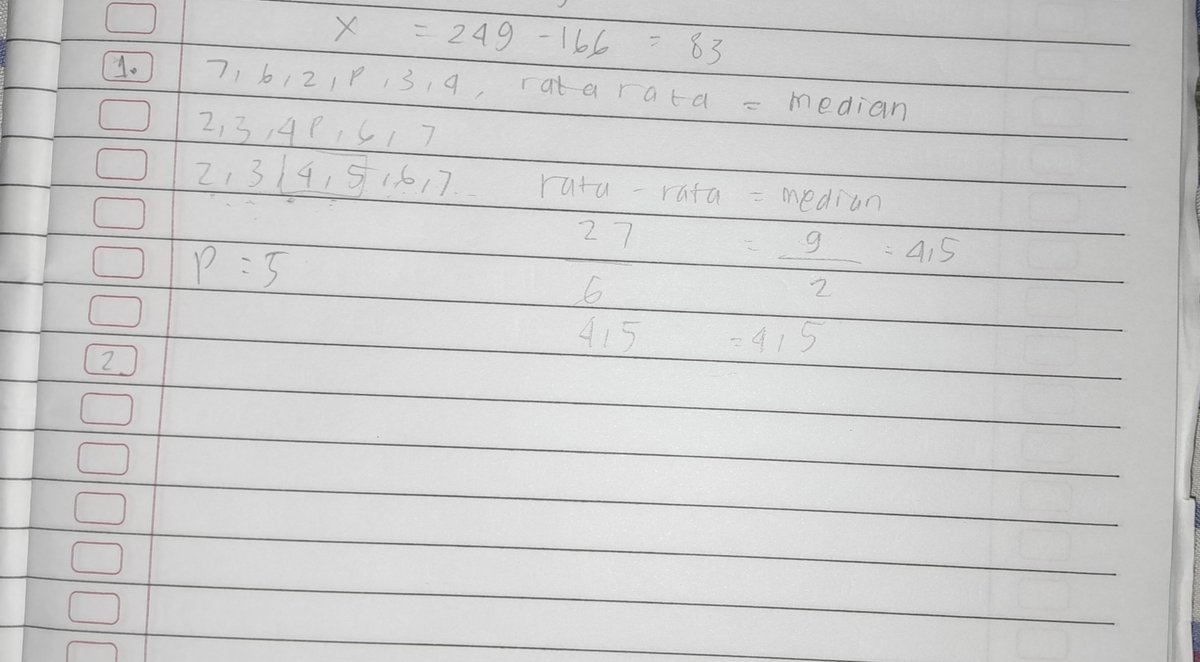 X = 249 - 166 = 83
1. 7, 6, 2, P, 3, 4, rata rata = median
2, 3, 4 P, 6, 7
2, 3, 4, 5, 6, 7 rata - rata = median
27 = 9 = 4,5
P = 5
6 2
4,5 = 4,5
2.